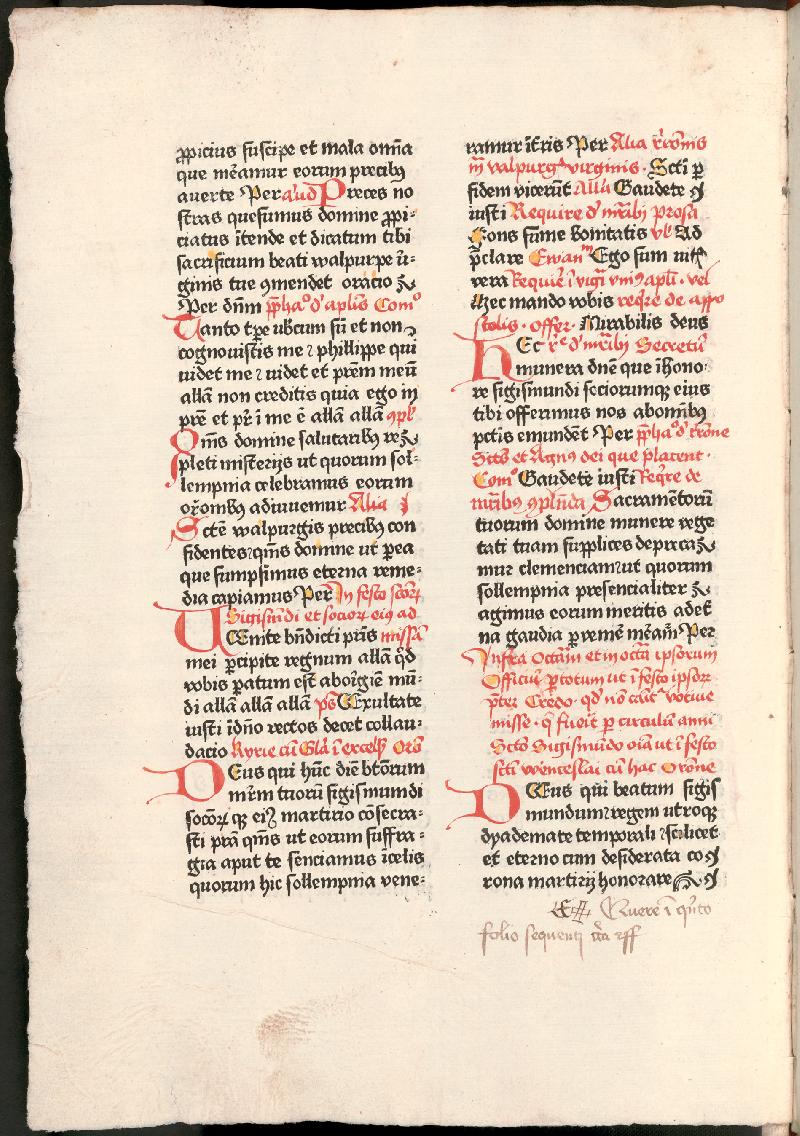 ꝓpicius suscipe et mala om̄ia
que me᷑amur eorum precibꝫ
auerte Per aliud Preces no
stras quesumus domine ꝓpi⸗
ciatus ītende et dicatum tibi
sacrificium beati walpurge ṽi⸗
ginis tue ꝯmendet oracio
Per dn̄m p̄fhaᵒ d᷑ aplis̄ Comᵒ
Tanto tꝑe vbcum sū et non
cognouistis me ⁊ phillippe qui
videt me ⁊ videt et prēm meū
all̄a non creditis quia ego in
pr̄e et pr̄ ī me ē all̄a all̄a ꝯpl̄
Om̄s domine salutaribꝫ re
pleti misterijs ut quorum sol⸗
lempnia celebramus eorum
or̄onibꝫ adiuuemur Alia
Sctē walpurgis precibꝫ con
fidentes qm̄s domine ut ꝑ ea
que sumpsimus eterna reme⸗
dia capiamus Per In festo sc̄orꝝ
Sigismūdi et socioꝝ eiꝰ ad
UEnite bn̄dicti pr̄is missā
mei ꝑcipite regnum all̄a q̄d
vobis ꝑatum est ab origīe mū⸗
di all̄a all̄a all̄a pͥs Exultate
iusti ī dn̄o rectos decet collau⸗
dacio Kyrie cū Gl̄a ī excels̄ Or̄o
DEus qui hūc diē bt̄orum
mr̄m tuorū sigismundi
socioꝝ qꝫ eiꝰ martirio cōsecra⸗
sti pr̄a qm̄s ut eorum suffra⸗
gia aput te senciamus ī celis
quorum hic sollempnia vene⸗
ramur ī t̄ris Per Alia r̄ronis
m̄ walpurgꝰ virginis · Sctī ꝑ
fidem vicerūt All̄a Gaudete
iusti Require d᷑ mr̄ibꝫ prosa
Fons sūme bonitatis vl̄ Ad
p̄clare Ewanᵐ Ego sum vit
vera Requir̄ ī vigī vniꝰ apl̄i · vel
Hec mando vobis reqr̄e de apo
stolis · Offer · Mirabilis deus
HEc r̄e d᷑ mr̄ibꝫ Secretū
munera dn̄e que ī hono⸗
re sigismundi sociorumque eius
tibi offerimus nos ab om̄ibꝫ
pctīs emundēt Per p̄fhaᵒ d᷑ r̄rōne
Sctūs et Agnus dei que placent ·
Comᵒ Gaudete iusti Reqr̄e de
mr̄ibꝫ ꝯplēda Sacramētorū
tuorum domine munere vege
tati tuam supplices depreca
mur clemenciam ut quorum
sollempnia presencialiter
agimus eorum meritis ad et̄
na gaudia ꝑ venire me᷑am᷑ Per
Infra Octāū et in octā ipsorum
Officiū ꝑ totum ut ī festo ipsoꝝ
p̄ter Credo · qd̄ nō canit᷑ votiue
misse · q̄ fuerīt ꝑ circulū anni
Sctō Sigismūdo om̄ia ut ī festo
sctī wenceslai cū hac Or̄one
DEus qui beatum sigis
mundum regem vtroqꝫ
dyademate temporali ⁊ scilicet
et eterno cum desiderata co
rona martirij honorare
Quere ī q̄nto
folio sequenti